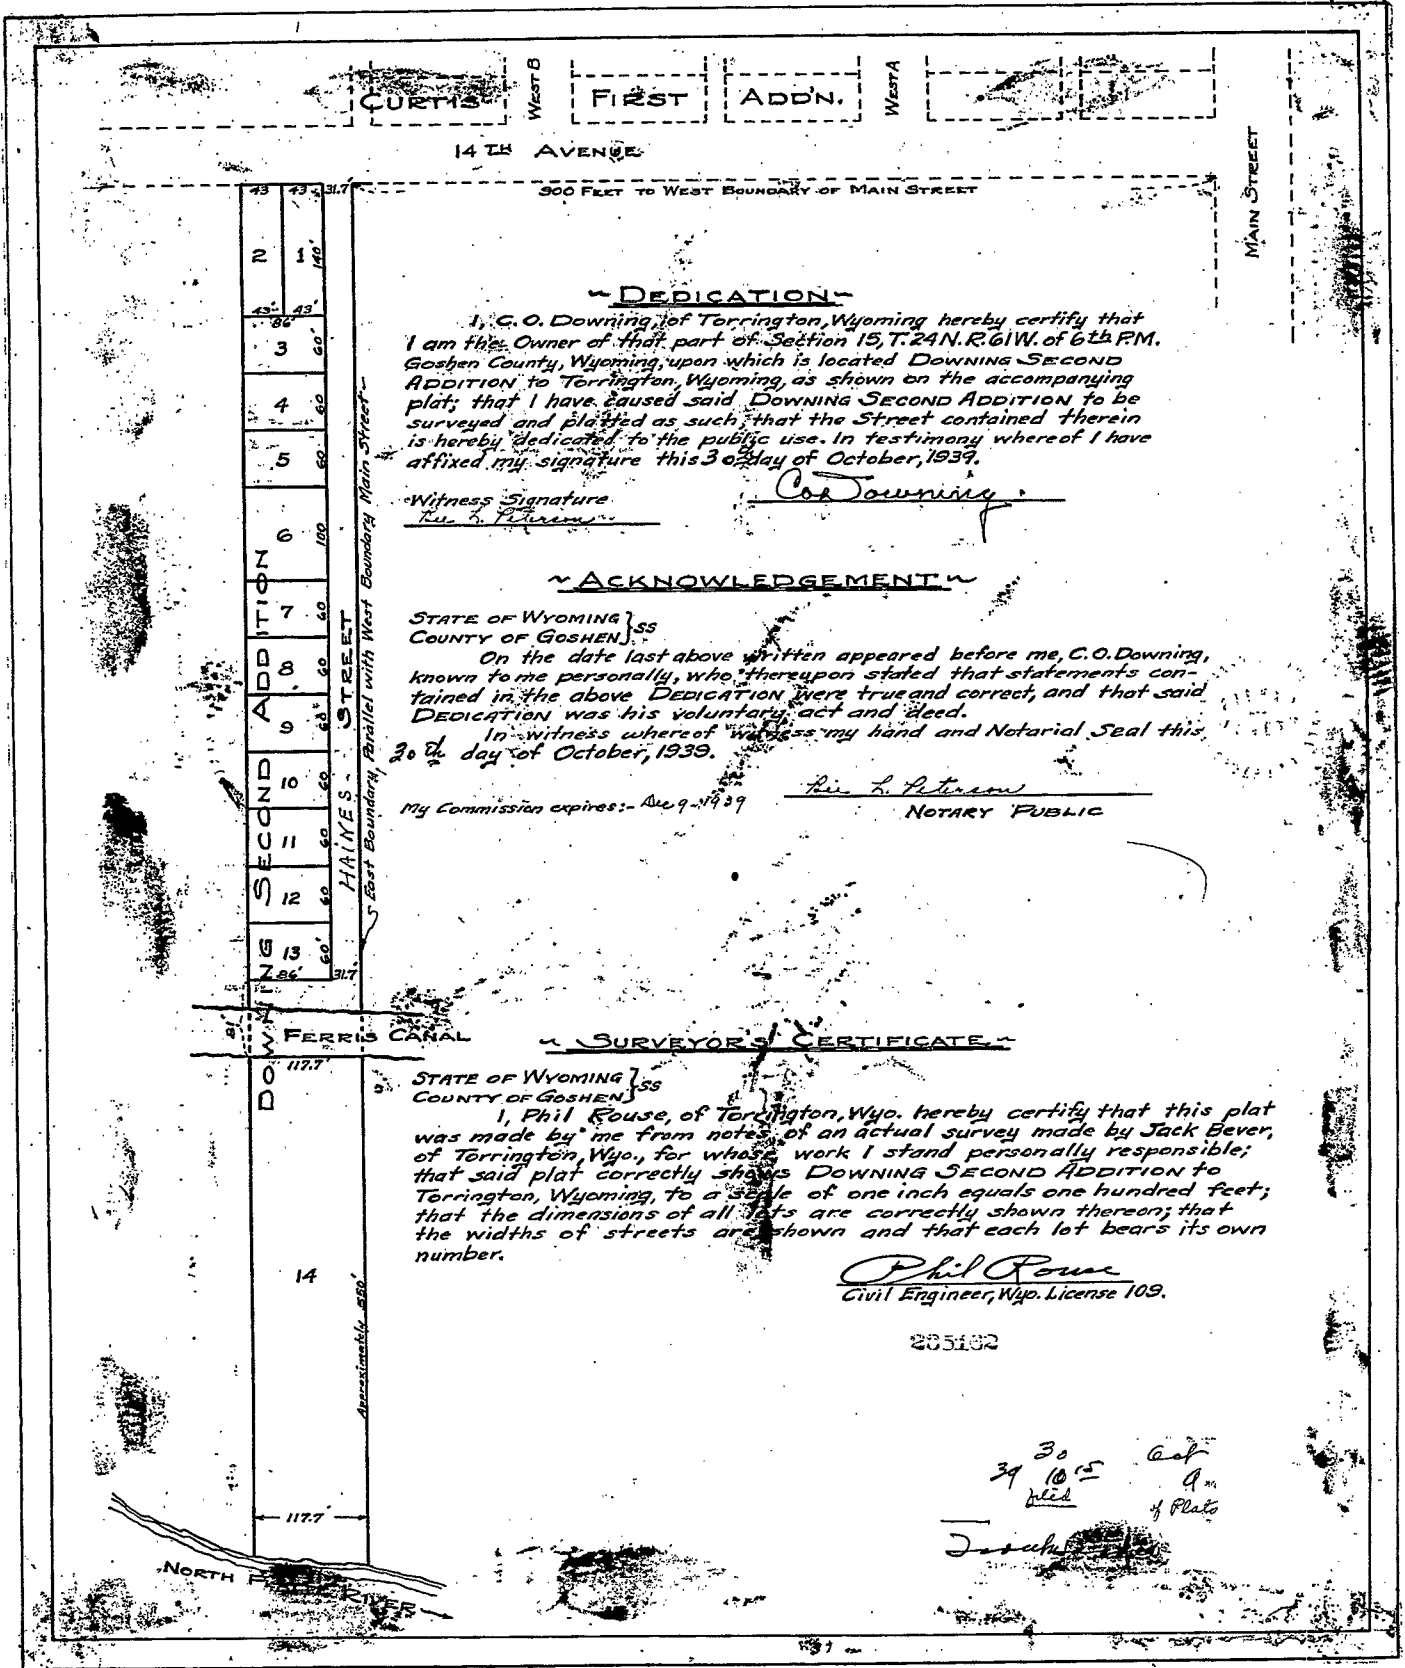 CURTIS WEST B FIRST ADD'N. WEST A
14 TH AVENUE
MAIN STREET
43 43 31.7'
900 FEET TO WEST BOUNDARY OF MAIN STREET
2 1 140'
43' 43'
86'
3 60'
4 60
5 60
6 100
7 60
8 60
9 60'
10 60
11 60
12 60
13 60'
86' 31.7'
DOWNING SECOND ADDITION
HAINES - STREET
East Boundary, Parallel with West Boundary Main Street
~ DEDICATION ~
I, C.O. Downing, of Torrington, Wyoming hereby certify that
I am the Owner of that part of Section 15, T. 24 N. R. 61 W. of 6th P.M.
Goshen County, Wyoming, upon which is located DOWNING SECOND
ADDITION to Torrington, Wyoming, as shown on the accompanying
plat; that I have caused said DOWNING SECOND ADDITION to be
surveyed and platted as such; that the Street contained therein
is hereby dedicated to the public use. In testimony whereof I have
affixed my signature this 30 day of October, 1939.
Witness Signature
L. Peterson
C O Downing.
~ ACKNOWLEDGEMENT ~
STATE OF WYOMING } SS
COUNTY OF GOSHEN
On the date last above written appeared before me, C.O. Downing,
known to me personally, who thereupon stated that statements con-
tained in the above DEDICATION were true and correct, and that said
DEDICATION was his voluntary act and deed.
In witness whereof witness my hand and Notarial Seal this
30 th day of October, 1939.
L. Peterson
My Commission expires:- Dec 9-1939
NOTARY PUBLIC
81'
FERRIS CANAL
117.7'
~ SURVEYOR'S CERTIFICATE ~
STATE OF WYOMING } SS
COUNTY OF GOSHEN
I, Phil Rouse, of Torrington, Wyo. hereby certify that this plat
was made by me from notes of an actual survey made by Jack Bever,
of Torrington, Wyo., for whose work I stand personally responsible;
that said plat correctly shows DOWNING SECOND ADDITION to
Torrington, Wyoming, to a scale of one inch equals one hundred feet;
that the dimensions of all lots are correctly shown thereon; that
the widths of streets are shown and that each lot bears its own
number.
Phil Rouse
Civil Engineer, Wyo. License 109.
14
Approximately 550'
30 Oct
39 10 15 A
filed of Plats
117.7'
NORTH PLATTE RIVER